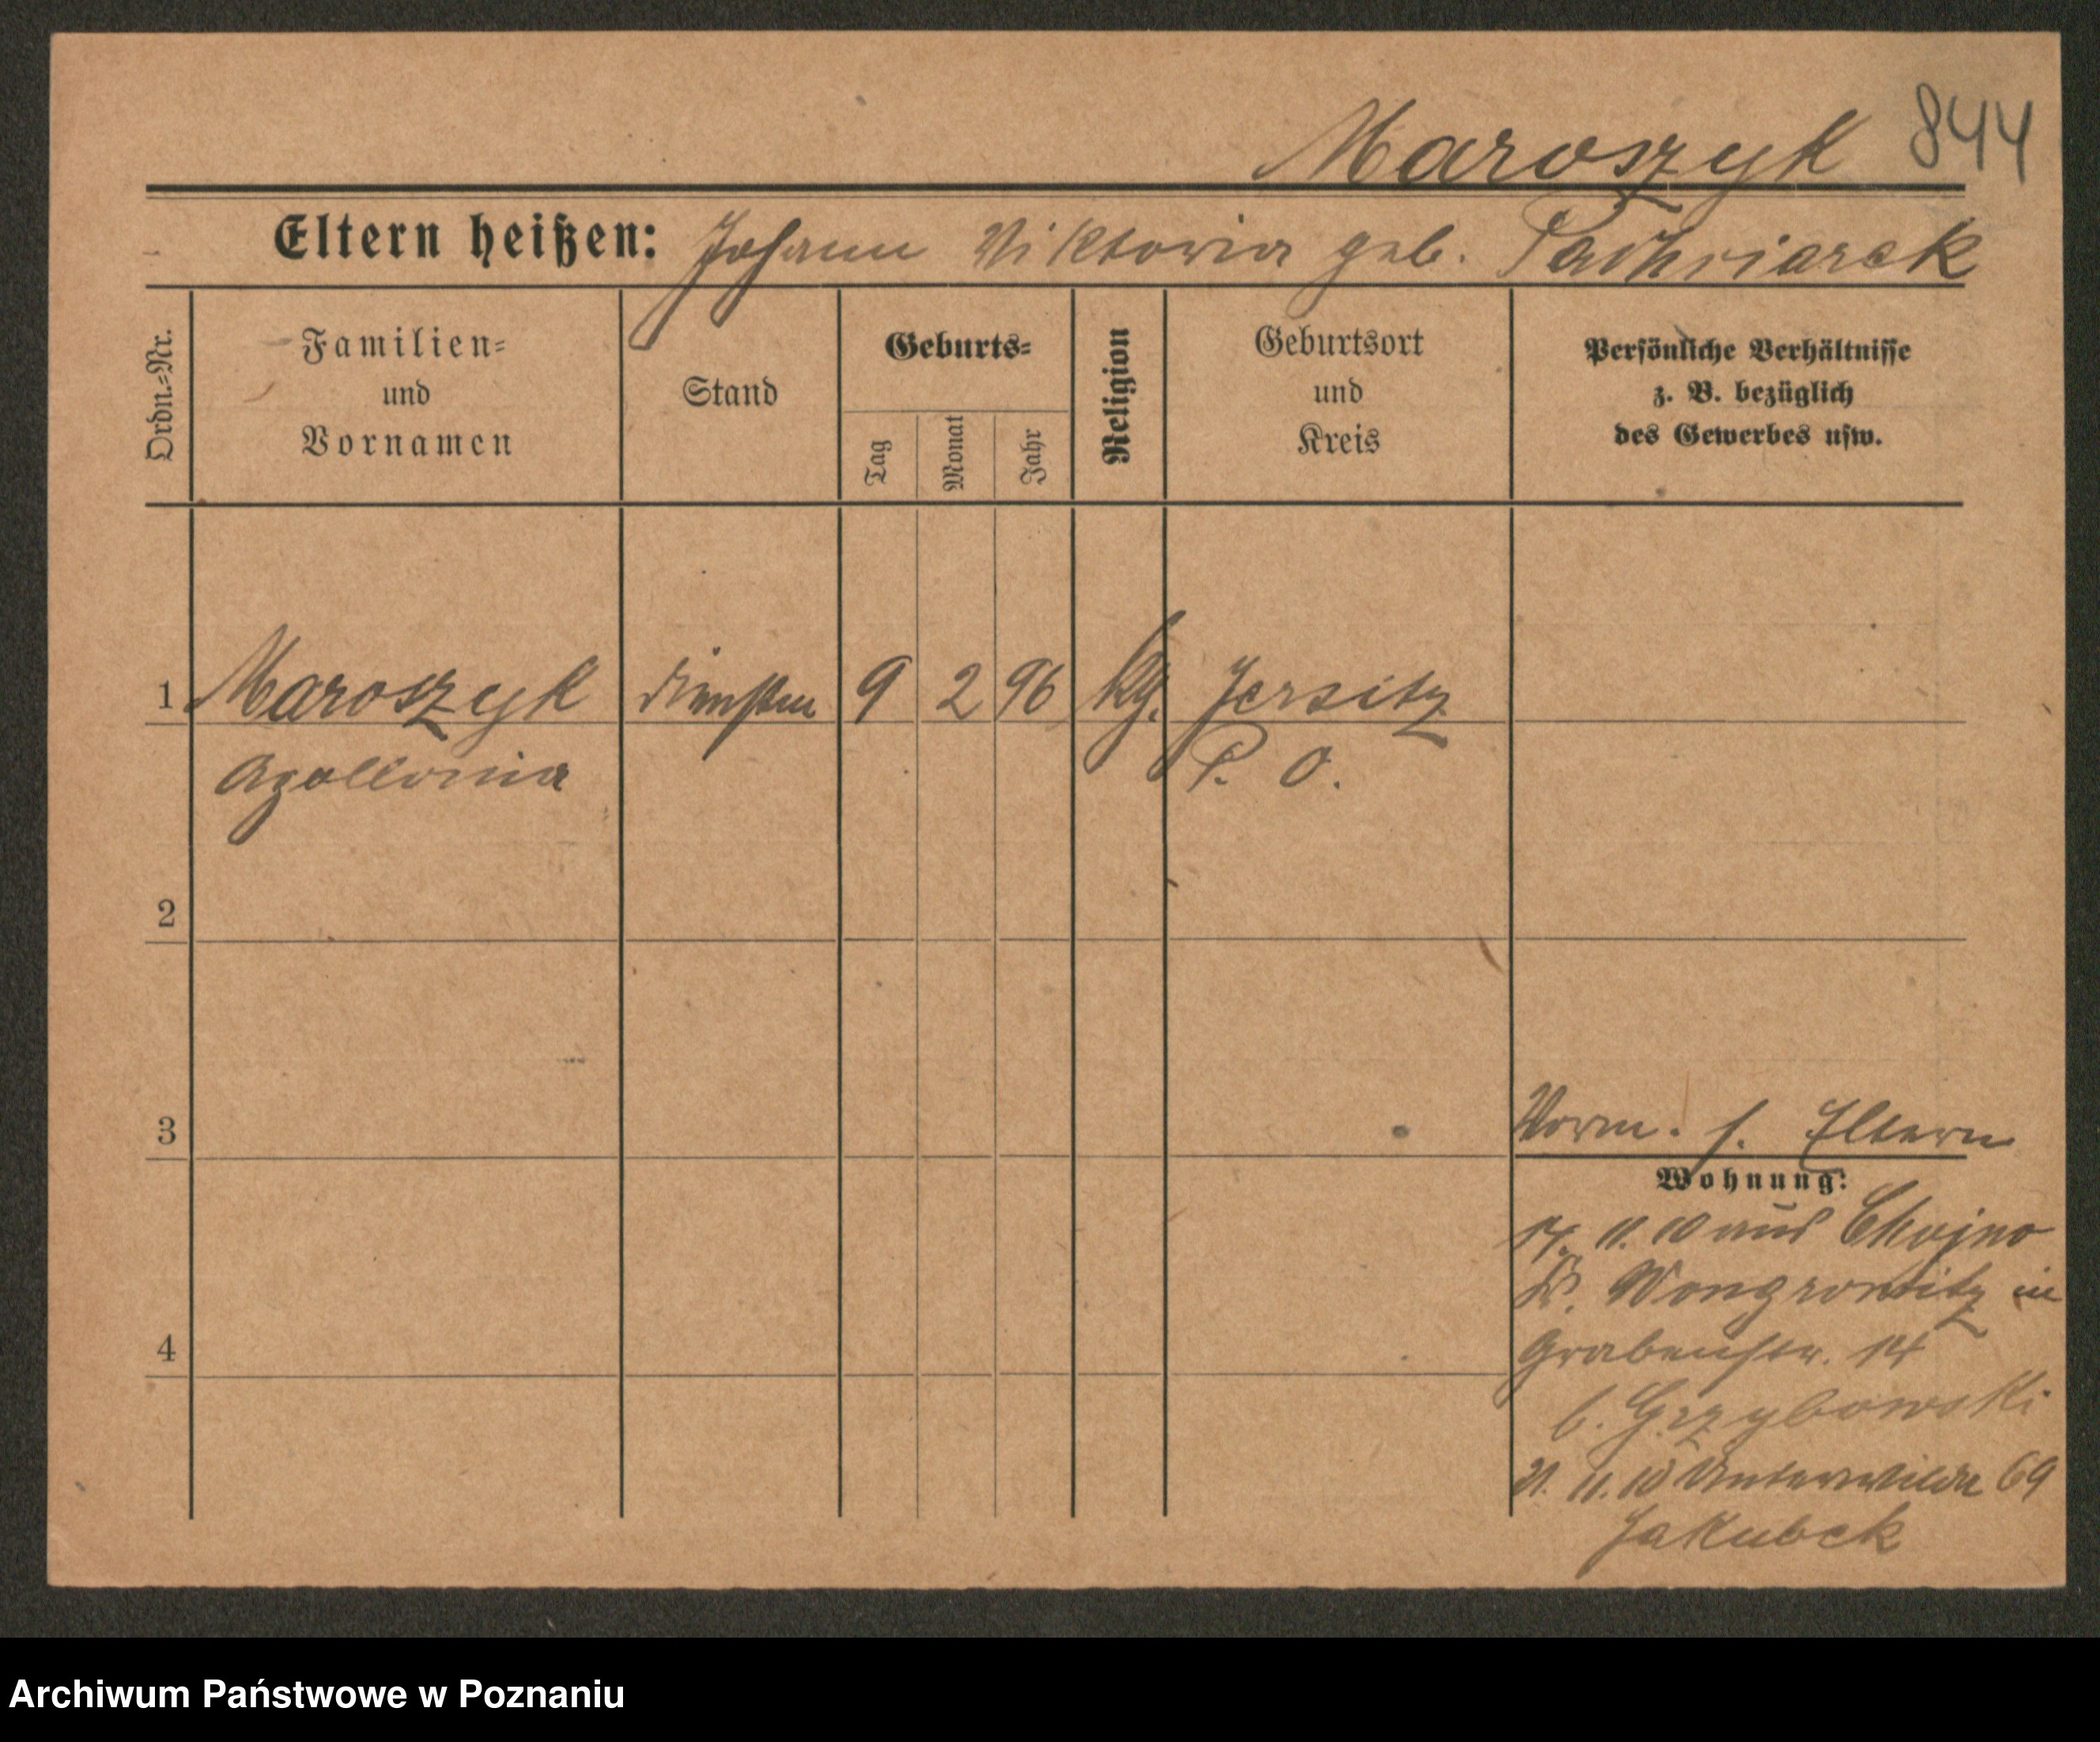 Maroszyk 844
Eltern heißen: Johann Viktoria geb.
Ordn.=Nr.
Familien=
und
Vornamen
Stand
Geburts=
Tag
Monat
Jahr
Religion
Geburtsort
und
Kreis
Persönliche Verhältnisse
z. B. bezüglich
des Gewerbes usw.
1 Maroszyk 9 2 96 kth. Jersitz
Apollonia P. O.
2
3
Vorm. s. Eltern
Wohnung:
17. 11. 10 aus Chojno
Kr. Wongrowitz in
4
Grabenstr. 14
b. Grzybowski
21. 11. 10 Unterwilda 69
Jakubek
Archiwum Państwowe w Poznaniu